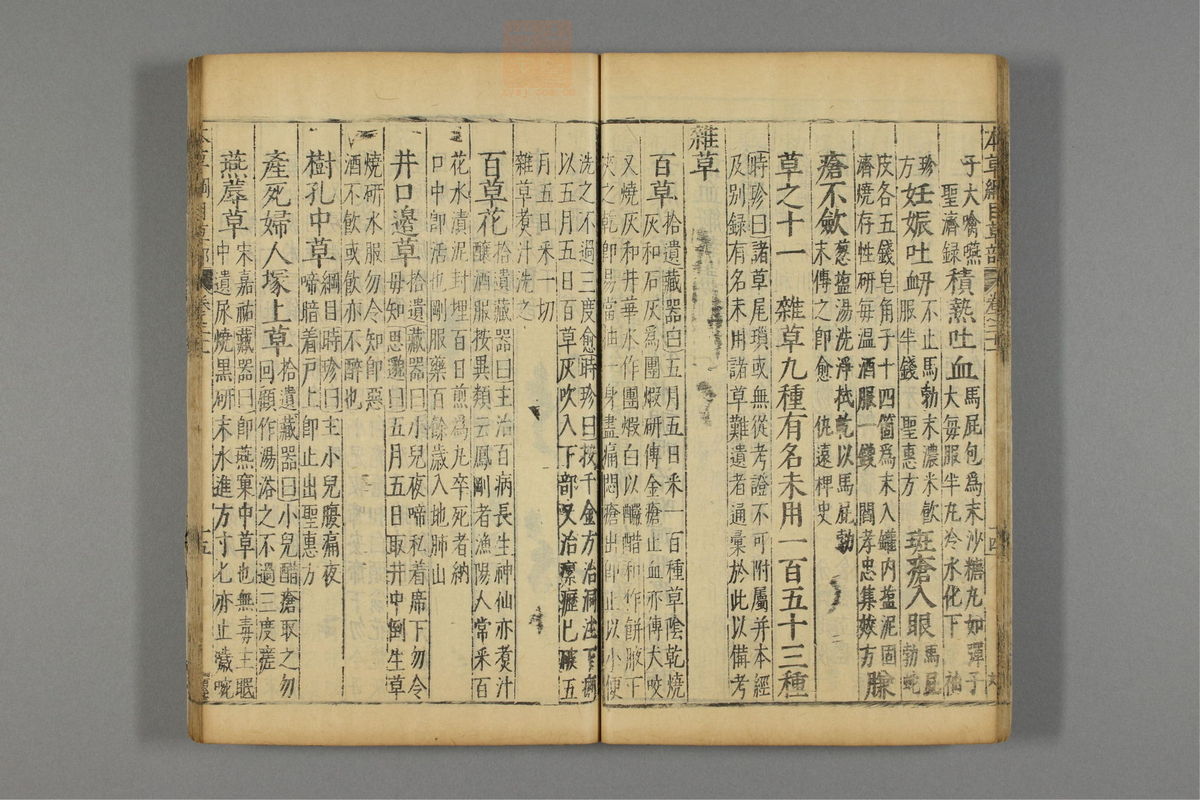 本草綱目草部 卷二十一 十四
子大噙嚥
聖濟錄 積熱吐血 馬屁包爲末沙糖丸如彈子
大每服半丸冷水化下 袖
珍方 妊娠吐衄 不止馬勃末濃米飲
服半錢 聖惠方 斑瘡入眼 馬屁
勃蛇
皮各五錢皂角子十四箇爲末入罐內鹽泥固
濟燒存性研每溫酒服一錢 閻孝忠集效方 臁
瘡不斂 葱鹽湯洗淨拭乾以馬屁勃
末傅之卽愈 仇遠稗史
草之十一 雜草九種有名未用一百五十三種
時珍曰諸草尾瑣或無從考證不可附屬并本經
及別錄有名未用諸草難遺者通彙於此以備考
雜草
百草 拾遺藏器曰五月五日釆一百種草陰乾燒
灰和石灰爲團煆研傅金瘡止血亦傅犬咬
又燒灰和井華水作團煆白以釅醋和作餅腋下
夾之乾卽易當抽一身盡痛悶瘡出卽止以小便
洗之不過三度愈時珍曰按千金方治洞注下痢
以五月五日百草灰吹入下部又治瘰癧已破五
月五日釆一切
雜草煑汁洗之
百草花 拾遺藏器曰主治百病長生神仙亦煑汁
釀酒服按異類云鳳剛者漁陽人常釆百
花水漬泥封埋百日煎爲丸卒死者納
口中卽活也剛服藥百餘歲入地肺山
井口邊草 拾遺藏器曰小兒夜啼私着席下勿令
母知思邈曰五月五日取井中倒生草
燒研水服勿令知卽惡
酒不飲或飲亦不醉也
樹孔中草 綱目時珍曰主小兒腹痛夜
啼暗着戸上卽止出聖惠方
產死婦人塚上草 拾遺藏器曰小兒醋瘡取之勿
回顧作湯浴之不過三度瘥
燕蓐草 宋嘉祐藏器曰卽燕窠中草也無毒主眠
中遺尿燒黑研末水進方寸匕亦止噦啘
本草綱目草部 卷二十一 十五